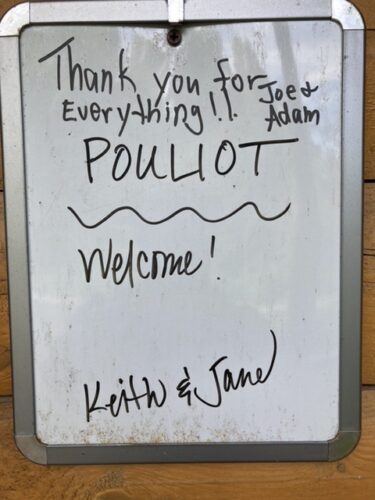 Thank you for
Everything!!. Joe &
Adam
POULIOT
Welcome!
Keith & Jane